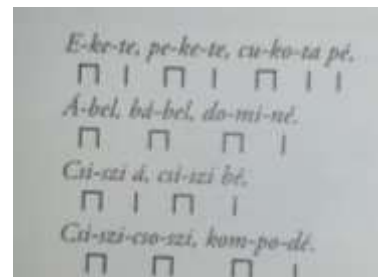 E-ke-te, pe-ke-te, cu-ko-ta pé,
Á-bel, bá-bel, do-mi-né.
Csi-szi á, csi-szi bé,
Csi-szi-cso-szi, kom-po-dé.